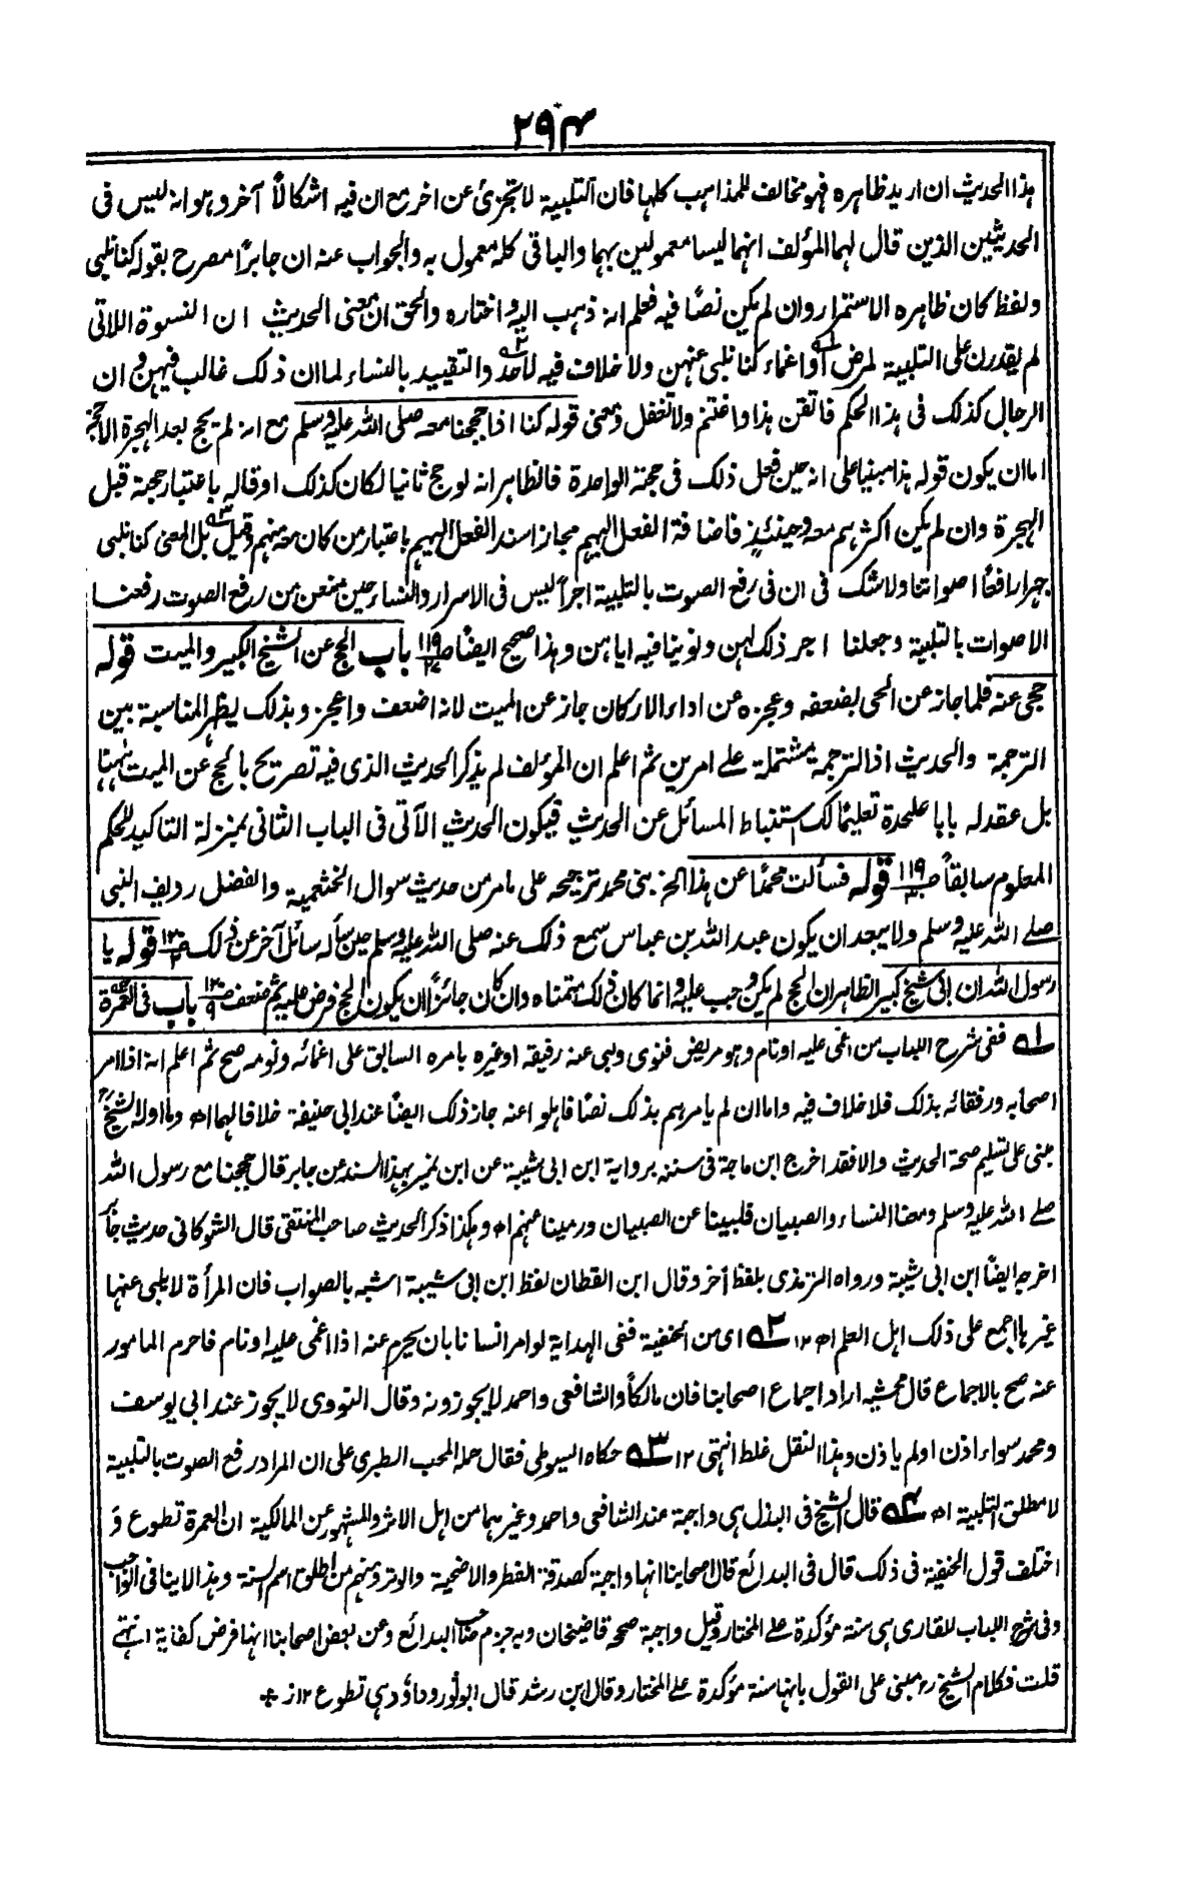 ٢٩٤
هذا الحديث ان اريد ظاهره فهو مخالف للمذاهب كلها فان التلبية لا تجزئ عن اخر مع ان فيه اشكالاً آخر وهو انه ليس فى
الحديثين الذين قال لهما المؤلف انهما ليسا معمولين بهما والباقى كله معمول به والجواب عنه ان جابرًا مصرح بقوله كنا نلبى
ولفظ كان ظاهره الاستمرار وان لم يكن نصًا فيه فعلم انه ذهب اليه واختاره والحق ان معنى الحديث ان النسوة اللاتى
لم يقدرن على التلبية لمرض ١ه او اغماء كنا نلبى عنهن ولا خلاف فيه لاحد ٢ه والتقييد بالنساء لما ان ذلك غالب فيهن وان
الرجال كذلك فى هذا الحكم فاتقن هذا واغتنم ولا تغفل ومعنى قوله كنا اذا حججنا معه صلى الله عليه وسلم مع انه لم يحج بعد الهجرة الا حجة
اما ان يكون قوله هذا مبنيا على انه حين فعل ذلك فى حجته الواحدة فالظاهر انه لو حج ثانيا لكان كذلك او قاله باعتبار حجته قبل
الهجرة وان لم يكن اكثرهم معه وحينئذٍ فاضافة الفعل اليهم مجاز اسند الفعل اليهم باعتبار من كان معه منهم وقيل ٣ه بل المعنى كنا نلبى
جهرا رافعًا اصواتنا ولا شك فى ان فى رفع الصوت بالتلبية اجراً ليس فى الاسرار والنساء حين منعن من رفع الصوت رفعنا
الاصوات بالتلبية وجعلنا اجر ذلك لهن ونوينا فيه اياهن وهذا صحيح ايضًا ص١١٩ باب الحج عن الشيخ الكبير والميت قوله
حجى عنه فلما جاز عن الحى بضعفه وعجزه عن اداء الاركان جاز عن الميت لانه اضعف واعجز وبذلك يظهر المناسبة بين
الترجمة والحديث اذ الترجمة مشتملة على امرين ثم اعلم ان المؤلف لم يذكر الحديث الذى فيه تصريح بالحج عن الميت ههنا
بل عقد له بابا عليحدة تعليمًا لك استنباط المسائل عن الحديث فيكون الحديث الآتى فى الباب الثانى بمنزلة التاكيد للحكم
المعلوم سابقاً ص١١٩ قوله فسألت محمدًا عن هذا الخ بنى محمد ترجيحه على مامر من حديث سوال الخثعمية والفضل رديف النبى
صلے الله عليه وسلم ولا يبعد ان يكون عبد الله بن عباس سمع ذلك عنه صلى الله عليه وسلم حين سأله سائل آخر عن ذلك ص١٢٠ قوله يا
رسول الله ان ابى شيخ كبير الظاهر ان الحج لم يكن وجب عليه وانما كان ذلك متمناه وان كان جائزًا ان يكون الحج فرض عليه ثم ضعف ص١٢٠ باب فى العمرة ٤ه
١ه ففى شرح اللباب من اغمى عليه او نام وهو مريض فنوى ولبى عنه رفيقه او غيره بامره السابق على اغمائه ونومه صح ثم اعلم انه اذا امر
اصحابه ورفقائه بذلك فلا خلاف فيه واما ان لم يامرهم بذلك نصًا فاهلوا عنه جاز ذلك ايضًا عند ابى حنيفة خلافا لهما اھ وما اوله الشيخ رح
مبنى على تسليم صحة الحديث والا فقد اخرج ابن ماجة فى سننه برواية ابن ابى شيبة عن ابن نمير بهذا السند عن جابر قال حججنا مع رسول الله
صلے الله عليه وسلم ومعنا النساء والصبيان فلبينا عن الصبيان ورمينا عنهم اھ وهكذا ذكر الحديث صاحب المنتقى قال الشوكانى حديث جابر
اخرجه ايضًا ابن ابى شيبة ورواه الترمذى بلفظ آخر وقال ابن القطان لفظ ابن ابى شيبة اشبه بالصواب فان المرأة لا يلبى عنها
غيرها اجمع على ذلك اهل العلم اھ ١٢ ٢ه اى من الحنفية ففى الهداية لو امر انسانا بان يحرم عنه اذا اغمى عليه او نام فاحرم المامور
عنه صح بالاجماع قال محشيه اراد اجماع اصحابنا فان مالكاً والشافعى واحمد لا يجوزونه وقال النووى لا يجوز عند ابى يوسف
ومحمد سواء اذن او لم ياذن وهذا النقل غلط انتهى ١٢ ٣ه حكاه السيوطى فقال حمله المحب الطبرى على ان المراد رفع الصوت بالتلبية
لا مطلق التلبية اھ ٤ه قال الشيخ فى البذل هى واجبة عند الشافعى واحمد وغيرهما من اهل الاثر والمشهور عن المالكية ان العمرة تطوع و
اختلف قول الحنفية فى ذلك قال فى البدائع قال اصحابنا انها واجبة كصدقة الفطر والاضحية والوتر ومنهم من اطلق اسم السنة وهذا لا ينافى الواجب
وفى شرح اللباب للقارى هى سنة مؤكدة على المختار وقيل واجبة صححه قاضيخان وبه جزم صاحب البدائع وعن بعض اصحابنا انها فرض كفاية انتهے
قلت فكلام الشيخ رح مبنى على القول بانها سنة مؤكدة على المختار وقال ابن رشد قال ابو ثور وداؤد هى تطوع ١٢ ز ٭